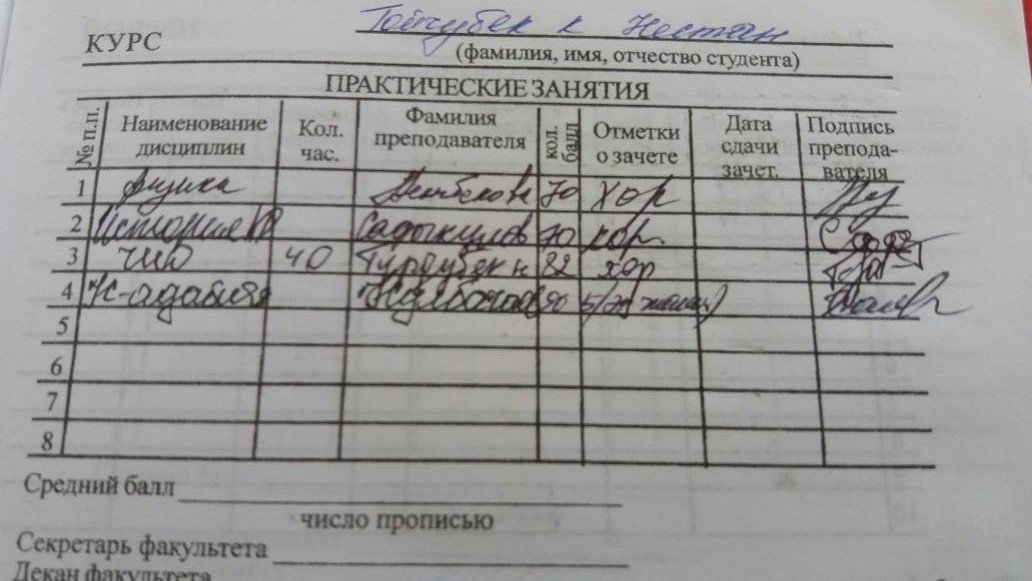 КУРС Тойчубек к Нестан
(фамилия, имя, отчество студента)
ПРАКТИЧЕСКИЕ ЗАНЯТИЯ
№ п.п. Наименование дисциплин Кол. час. Фамилия преподавателя кол. балл Отметки о зачете Дата сдачи зачет. Подпись препода- вателя
1 физика 70 хор
2 История КР Садыкулов 70 хор
3 ЧИО 40 Турдубек к 82 хор
4 К-адабият 90 5
5
6
7
8
Средний балл
число прописью
Секретарь факультета
Декан факультета